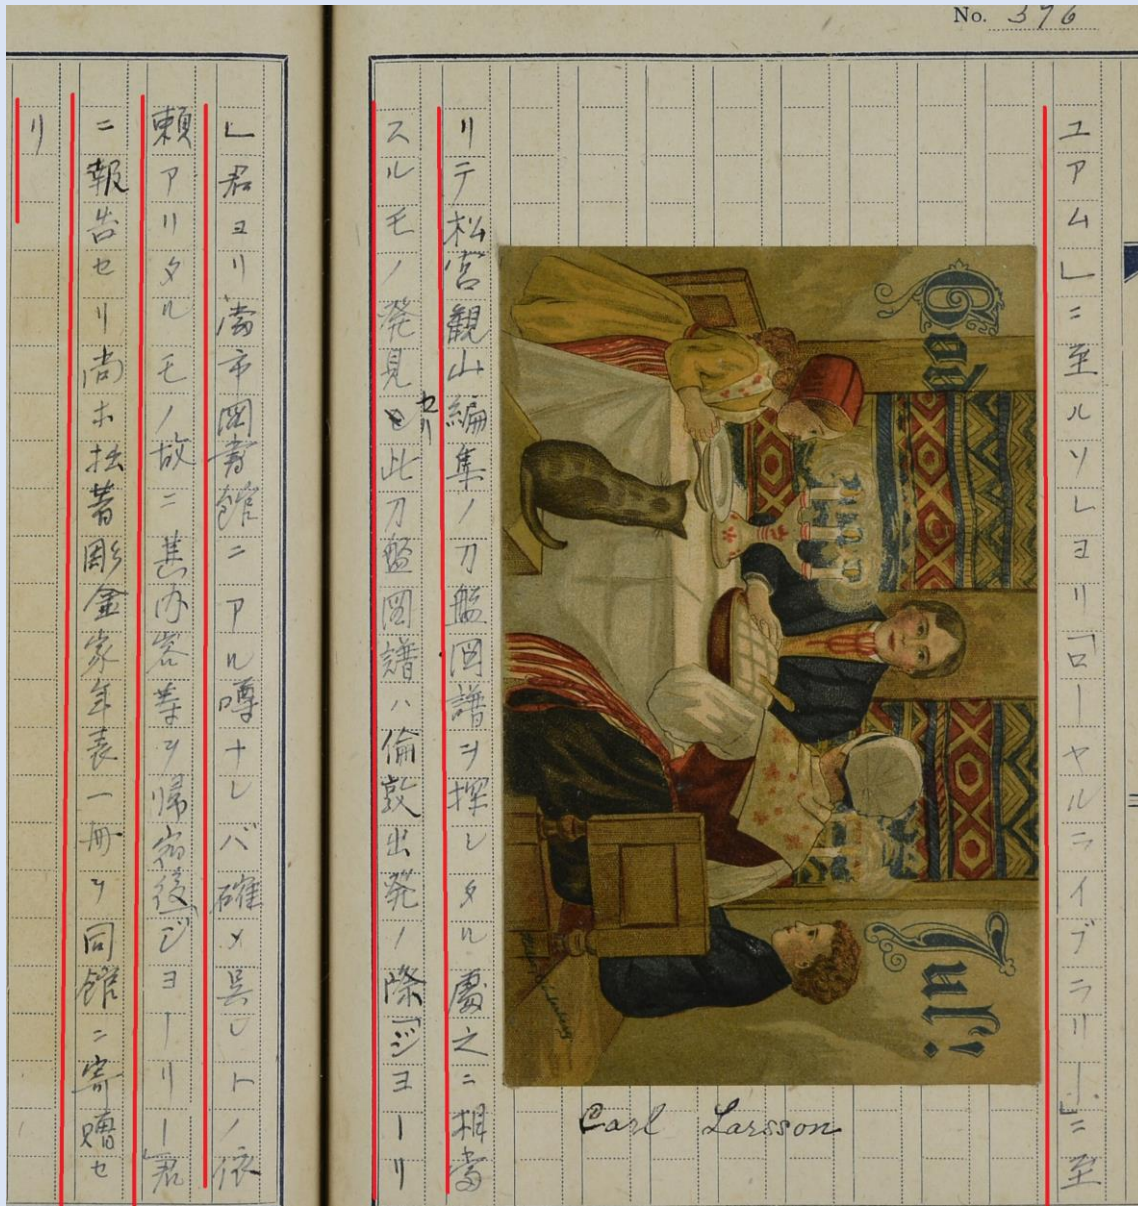 No. 376
ユアム」ニ至ルソレヨリ「ローヤルライブラリー」ニ至
God Jul!
Carl Larsson
リテ松宮観山編集ノ刀盤図譜ヲ探シタル處之ニ相當
スルモノ発見セリ此刀盤図譜ハ倫敦出発ノ際「ジヨーリ
」君ヨリ當市図書館ニアル噂ナレバ確メ呉レトノ依
頼アリタルモノ故ニ其内容等ヲ帰宿後「ジヨーリー」君
ニ報告セリ尚ホ拙著彫金家年表一冊ヲ同館ニ寄贈セ
リ